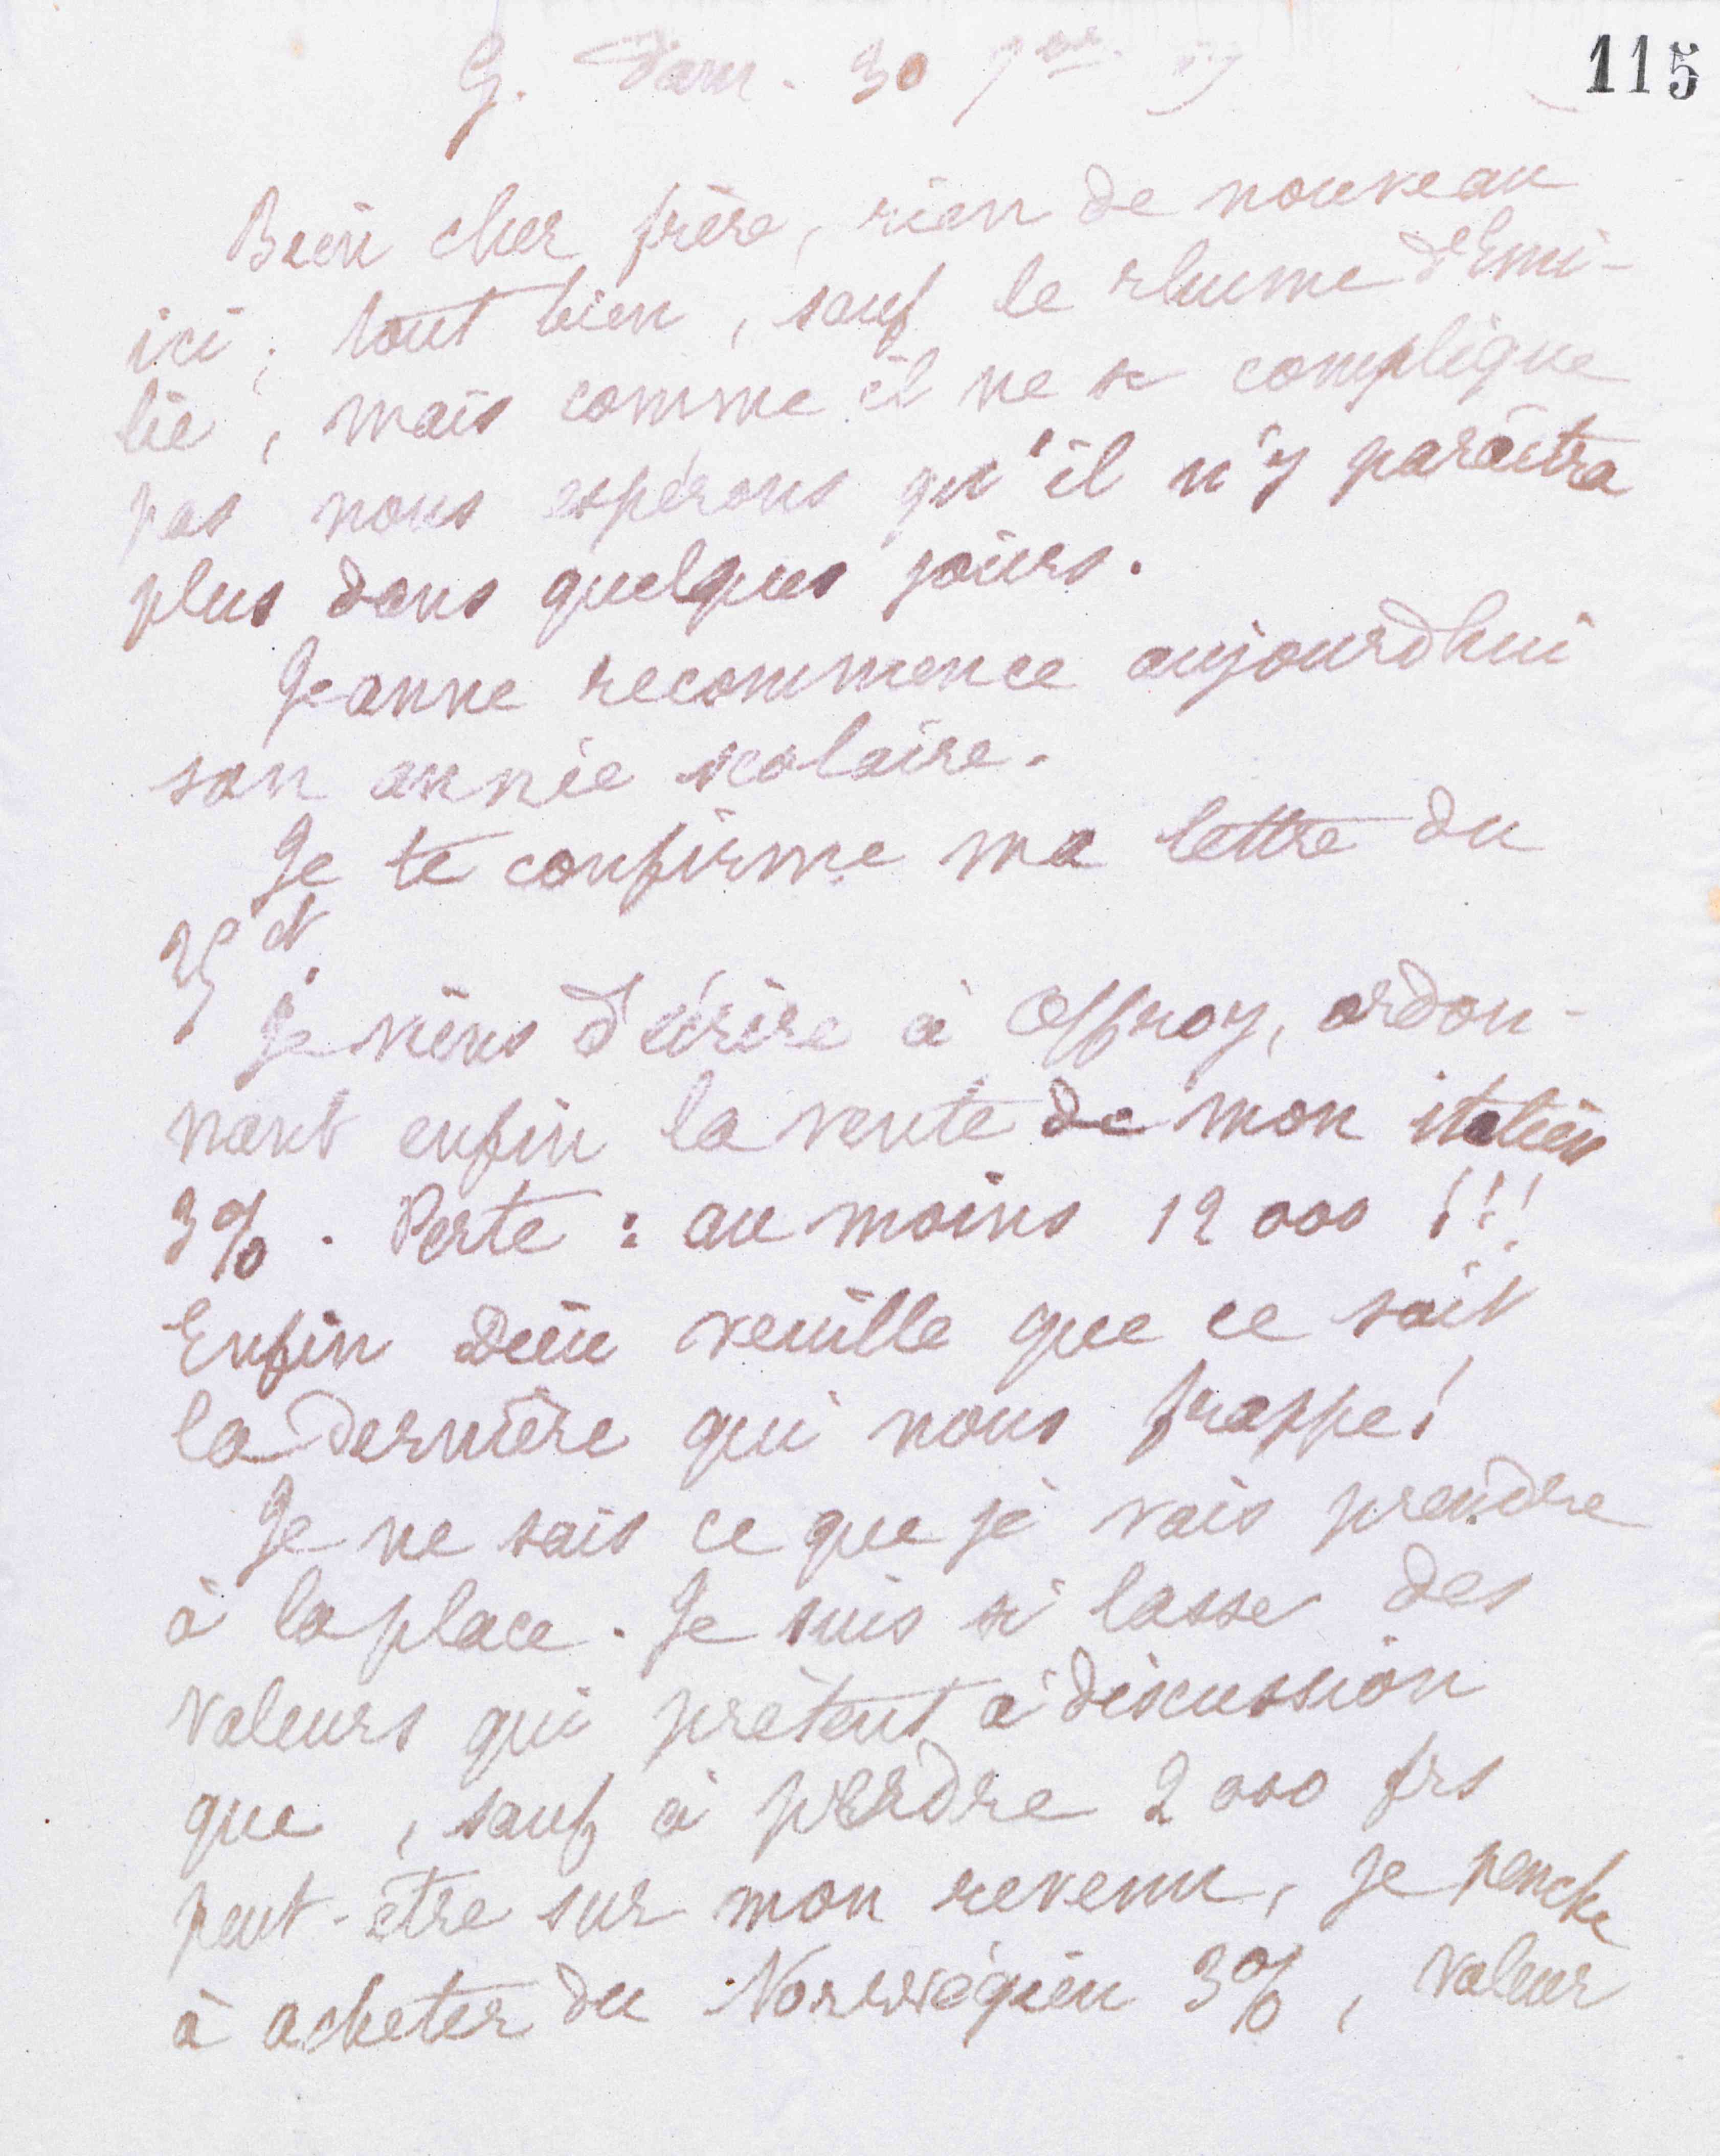 115
G. Dam. 30 7bre
Bien cher frère, rien de nouveau
ici; tout bien, sauf le rhume d'Emi-
lie, mais comme il ne se complique
pas nous espérons qu'il n'y paraîtra
plus dans quelques jours.
Jeanne recommence aujourd'hui
son année scolaire.
Je te confirme ma lettre du
25 ct.
Je viens d'écrire à Offroy, ordon-
nant enfin la vente de mon italien
3%. Perte : au moins 12 000 !!!
Enfin Dieu veuille que ce soit
la dernière qui nous frappe!
Je ne sais ce que je vais prendre
à la place. Je suis si lasse des
valeurs qui prêtent à discussion
que, sauf à perdre 2 000 frs
peut-être sur mon revenu, je penche
à acheter du Norwégien 3%, valeur